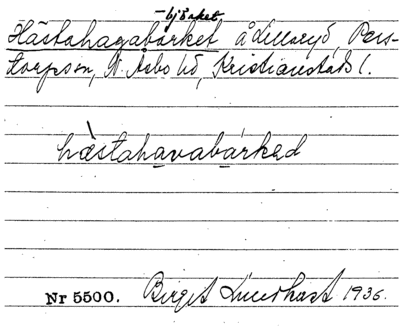 -bjärket
Hästahagabärket å Lillaryd, Pers-
torpsn, N. Åsbo hd, Kristianstads l.
hästahavabärked
Nr 5500. Birgit Lundkvist 1936.